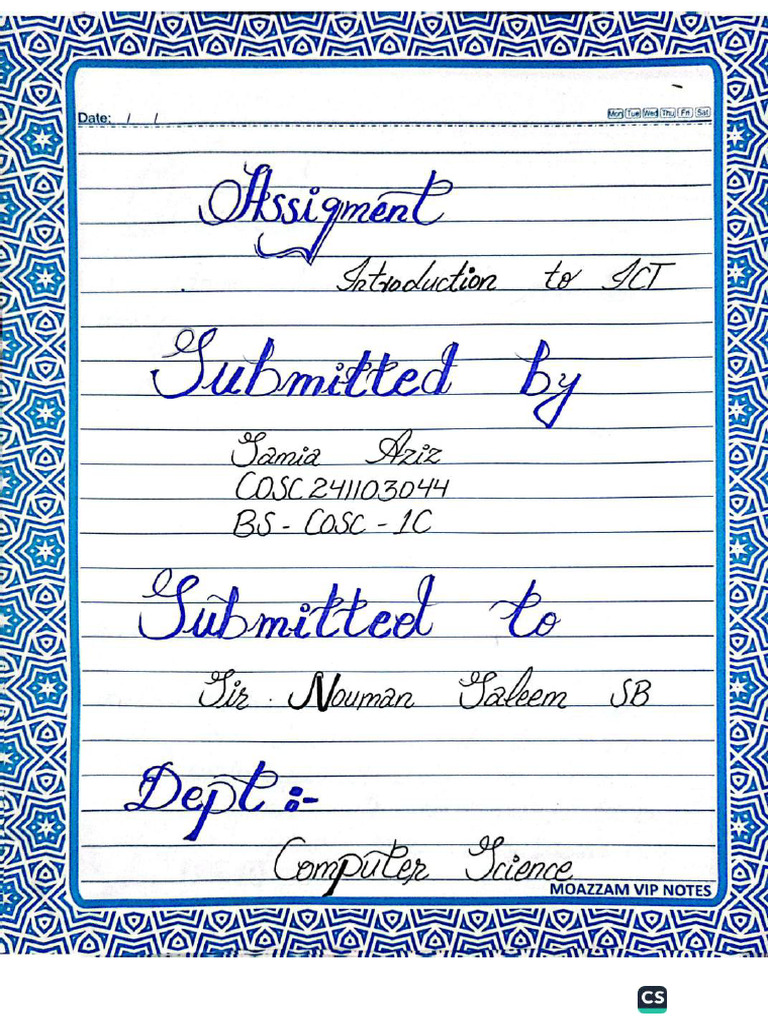 Date: / /
Mon Tue Wed Thu Fri Sat
Assigment
Introduction to ICT
Submitted by
Samia Aziz
COSC241103044
BS - COSC - 1C
Submitted to
Sir. Nouman Saleem SB
Dept :-
Computer Science
MOAZZAM VIP NOTES
CS